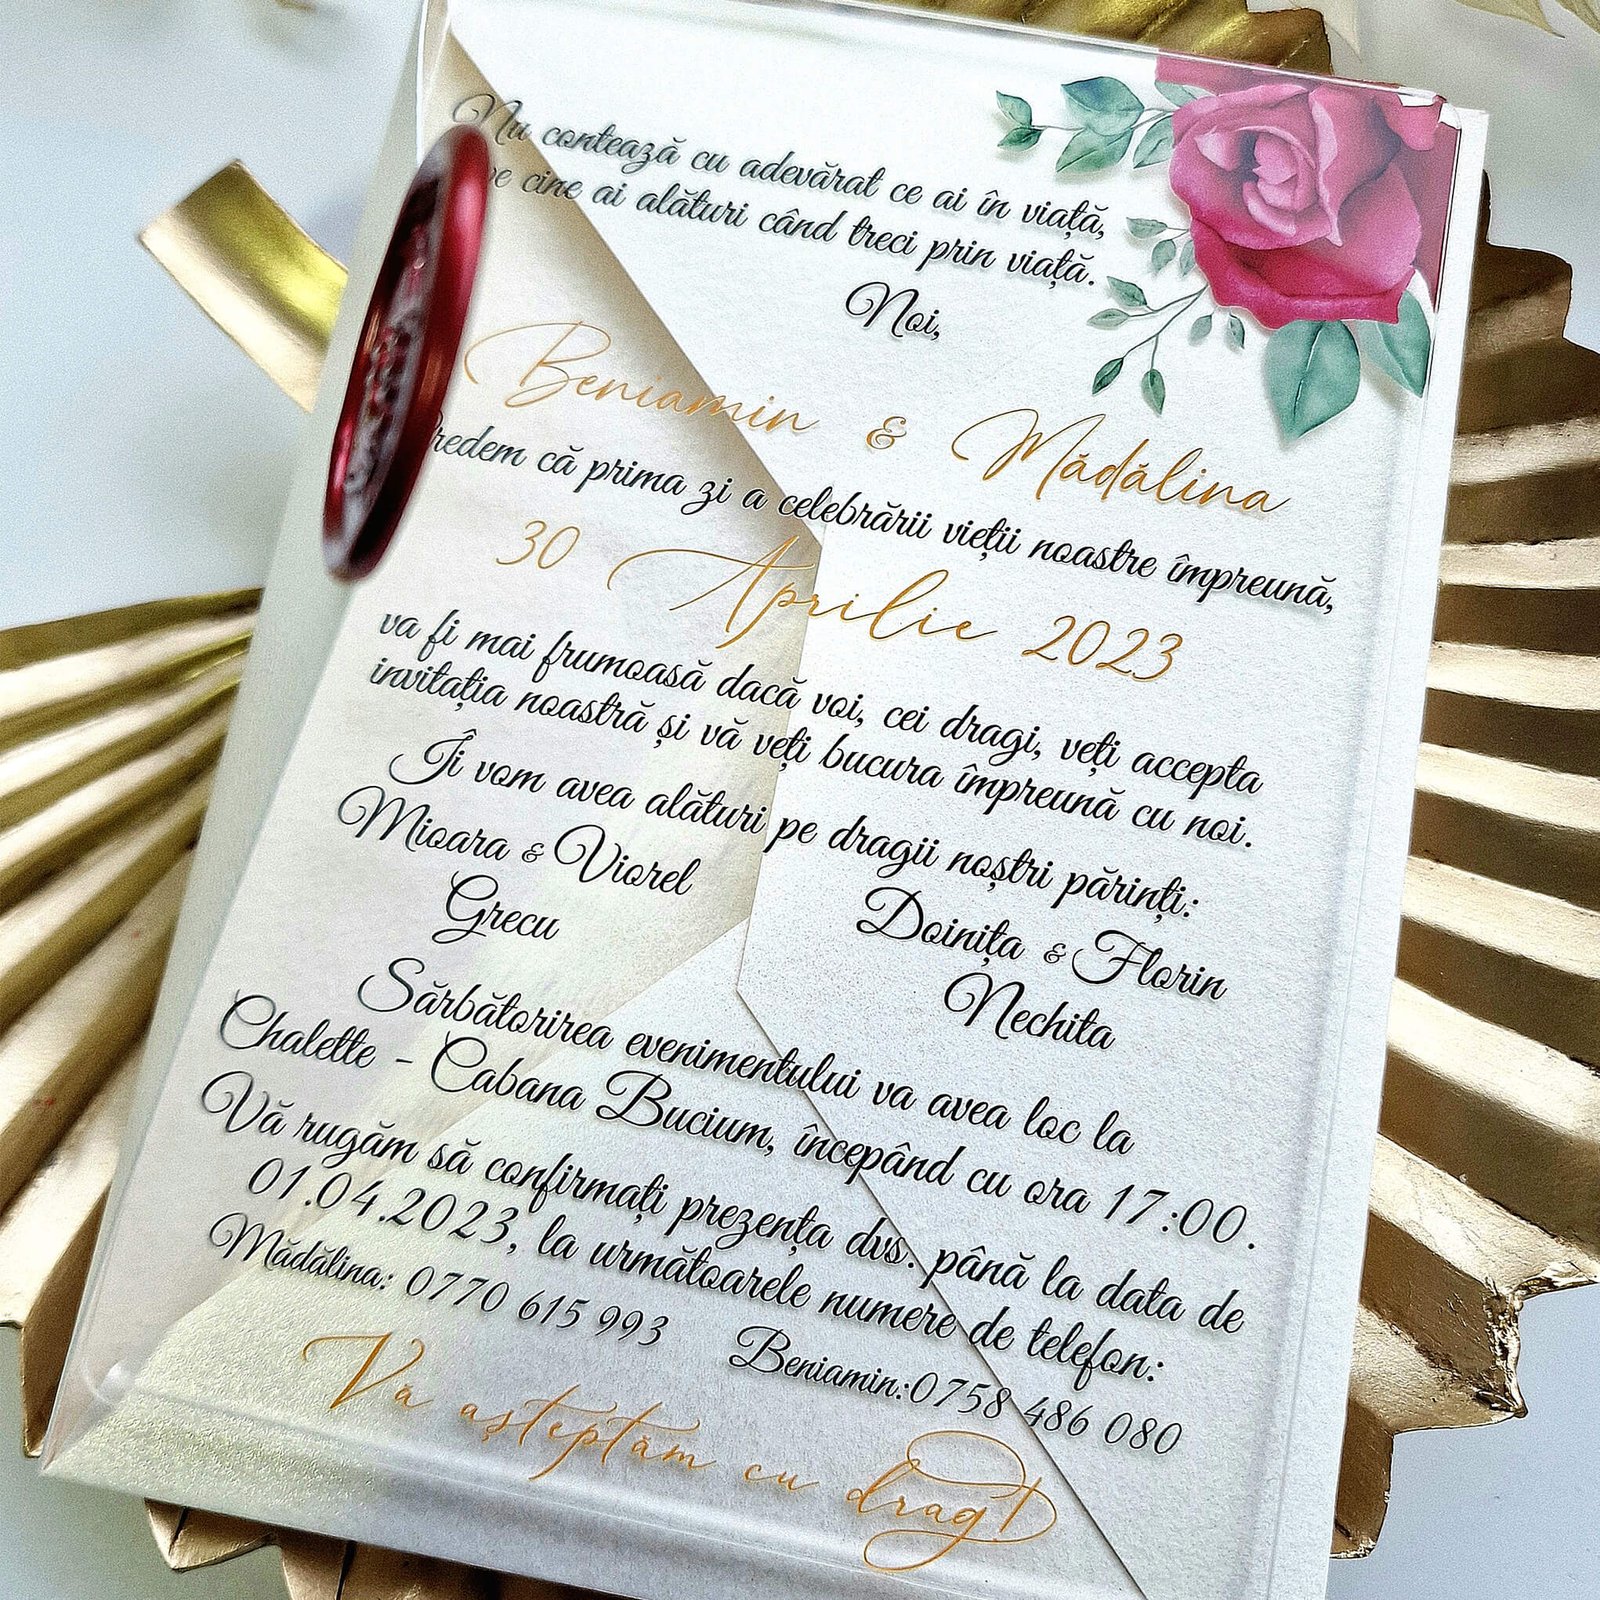 Nu contează cu adevărat ce ai în viață,
pe cine ai alături când treci prin viață.
Noi,
Beniamin & Mădălina
redem că prima zi a celebrării vieții noastre împreună,
30 Aprilie 2023
va fi mai frumoasă dacă voi, cei dragi, veți accepta
invitația noastră și vă veți bucura împreună cu noi.
Îi vom avea alături pe dragii noștri părinți:
Mioara & Viorel
Grecu
Doinița & Florin
Nechita
Sărbătorirea evenimentului va avea loc la
Chalette - Cabana Bucium, începând cu ora 17:00.
Vă rugăm să confirmați prezența dvs. până la data de
01.04.2023, la următoarele numere de telefon:
Mădălina: 0770 615 993 Beniamin:0758 486 080
Va așteptăm cu drag!